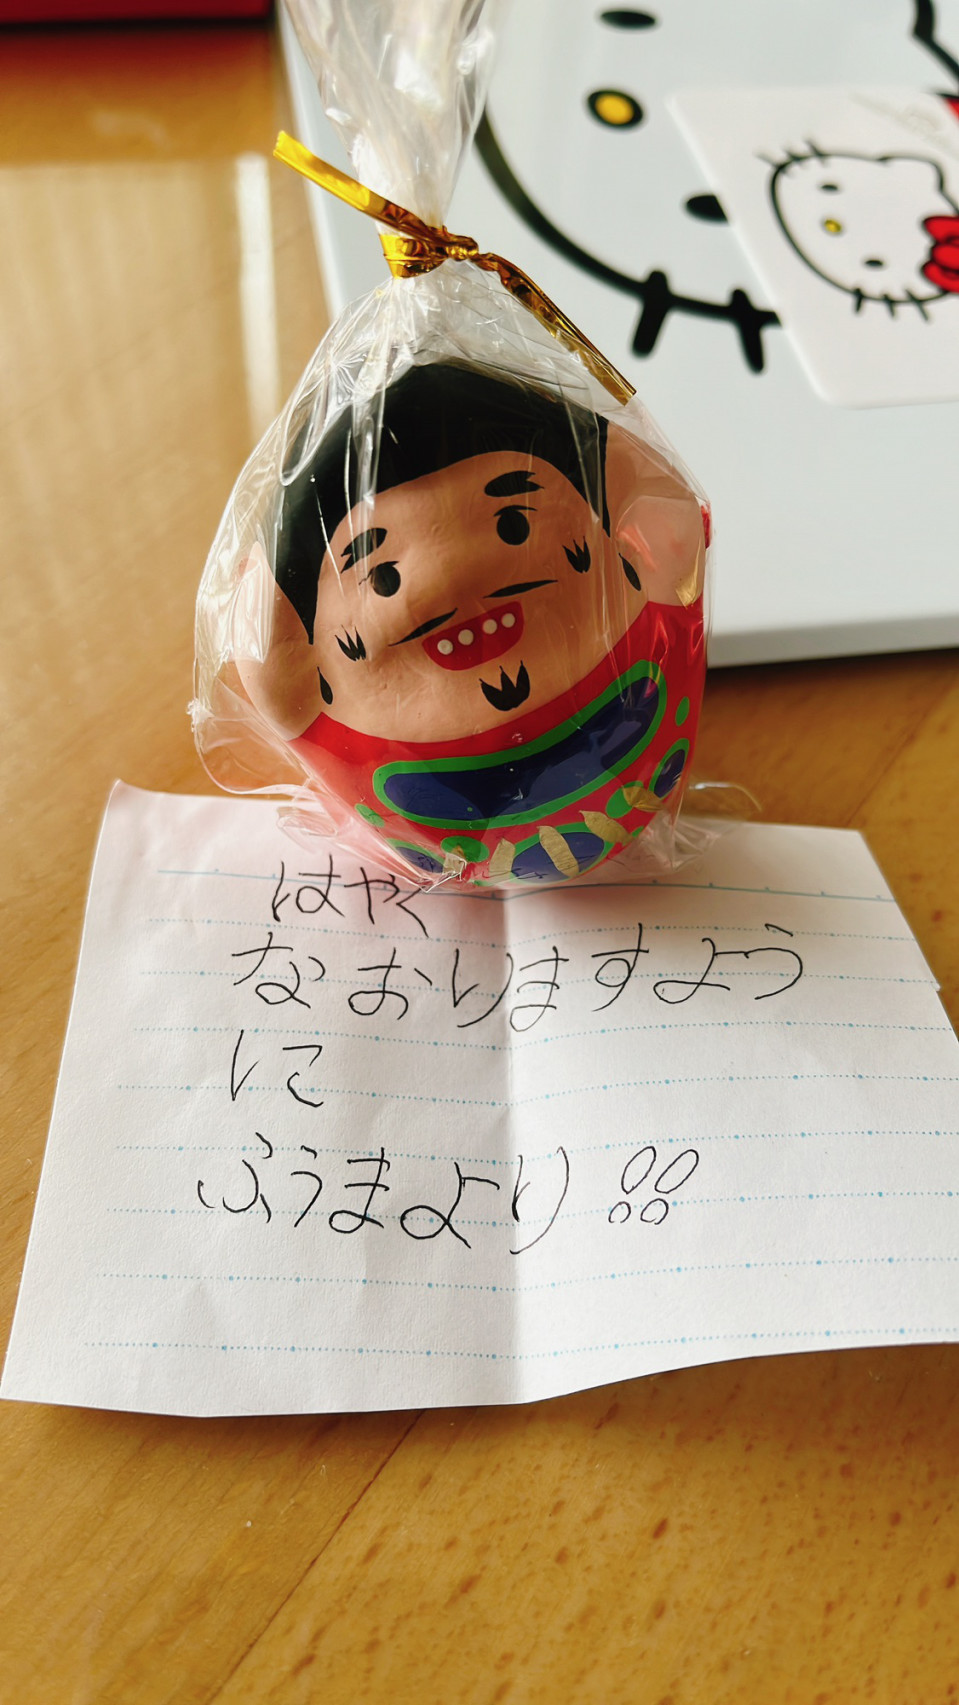 はやく
なおりますよう
に
ふうまより!!